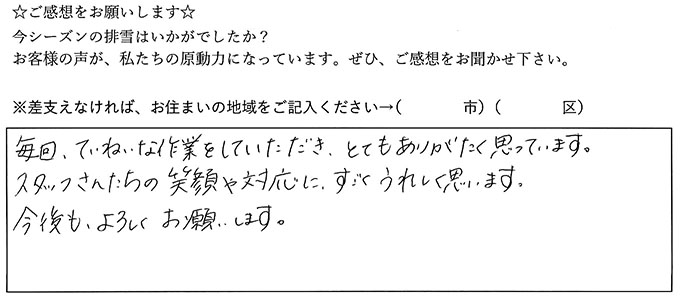 ☆ご感想をお願いします☆
今シーズンの排雪はいかがでしたか？
お客様の声が、私たちの原動力になっています。ぜひ、ご感想をお聞かせ下さい。
※差支えなければ、お住まいの地域をご記入ください→(　　　　市)（　　　　区）
毎回、ていねいな作業をしていただき、とてもありがたく思っています。
スタッフさんたちの笑顔や対応に、すごくうれしく思います。
今後も、よろしくお願いします。